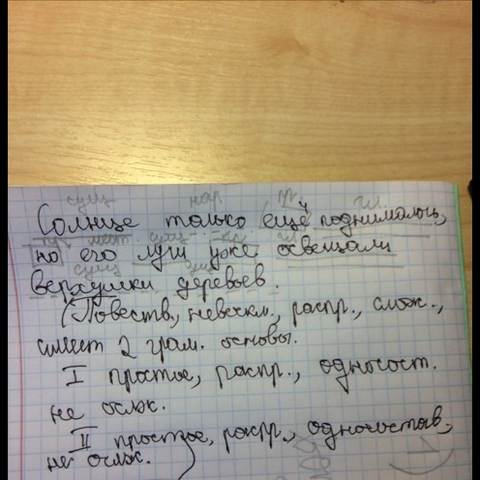 сущ нар. гл.
Солнце только ещё поднималось,
мест. сущ
но его лучи уже освещали
сущ
верхушки деревьев.
(Повеств., невоскл., распр., слож.,
имеет 2 грам. основы.
I простое, распр., односост.
не ослж.
II простое, распр., односостав,
не ослж.